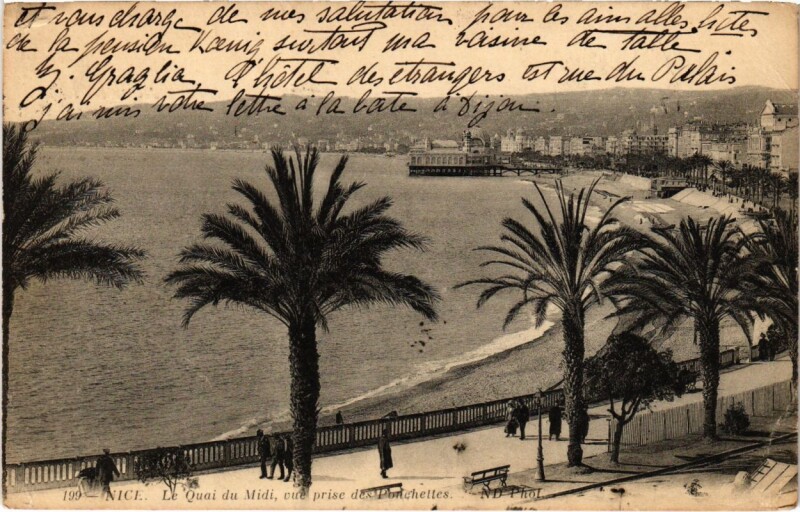 et vous charge de mes salutations pour les aimables hôtes
de la pension Kœnig surtout ma voisine de table
G. Graglia. l'hôtel des étrangers est rue du Palais
j'ai mis votre lettre à la boîte à Dijon.
199 - NICE. Le Quai du Midi, vue prise des Ponchettes.
ND Phot.